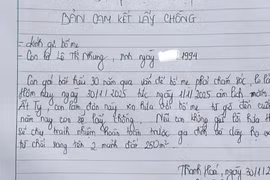 BẢN CAM KẾT LẤY CHỒNG
- Kính gửi bố mẹ
- Con là Lê Thị Nhung, sinh ngày 1994
Con gái bố hiểu 30 năm qua vẫn để bố mẹ phải chăm sóc, lo
Hôm nay ngày 30/1/2025 tức ngày 1/1/2025 âm lịch năm
Ất Tỵ, con làm đơn này xin hứa với bố mẹ từ giờ đến cuối
năm nay con sẽ lấy chồng. Nếu con không giữ lời hứa
sẽ chịu trách nhiệm hoàn toàn trước gia đình
từ chối sang tên 2 mảnh đất 250m²
Thanh Hoá, ngày 30/1/2